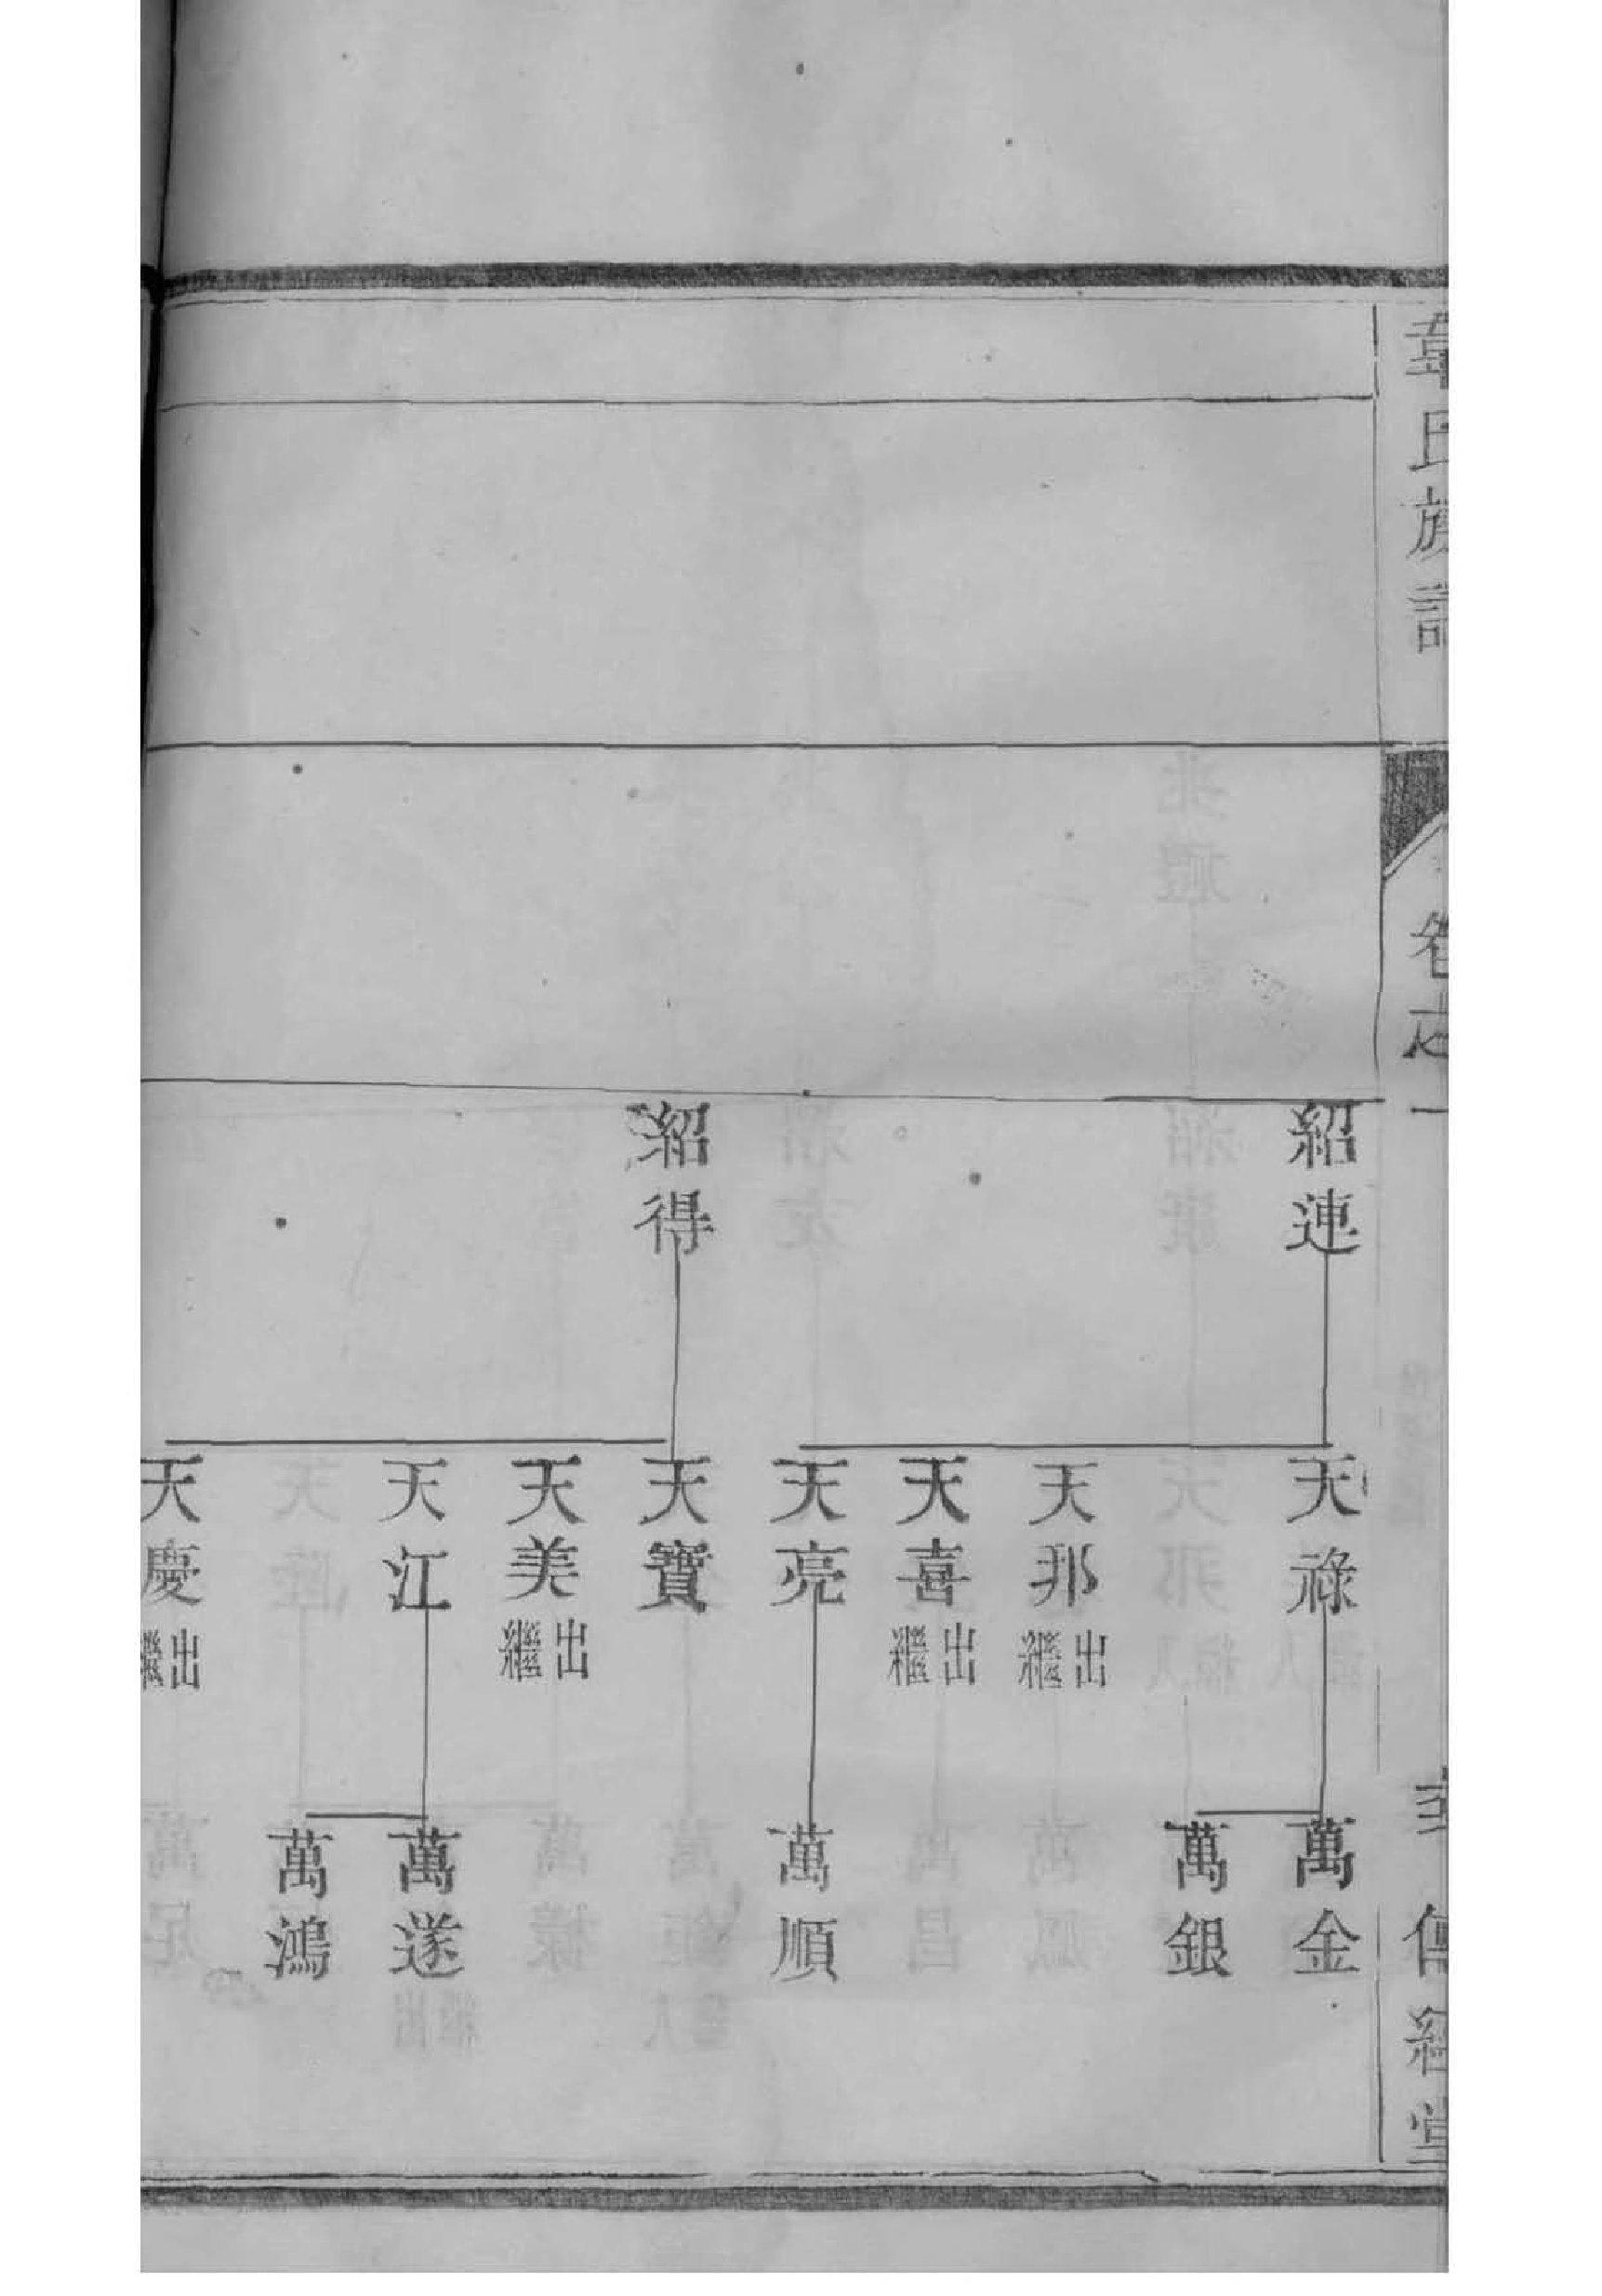 韋氏族譜
卷之一
傳經堂
紹連
紹得
天祿
天邦 出繼
天喜 出繼
天亮
天寶
天美 出繼
天江
天慶 出繼
萬金
萬銀
萬順
萬遂
萬鴻